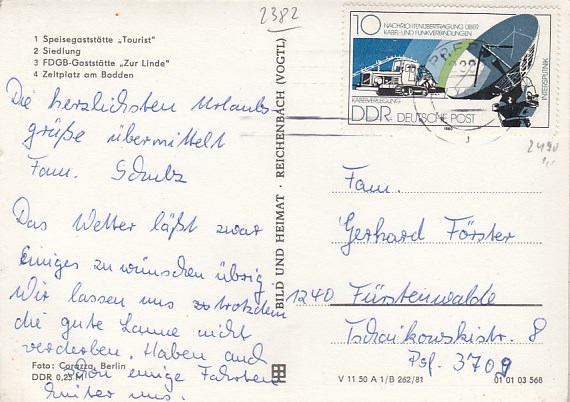 2382
1 Speisegaststätte „Tourist"
2 Siedlung
3 FDGB-Gaststätte „Zur Linde"
4 Zeltplatz am Bodden
Die herzlichsten Urlaubs-
grüße übermittelt
Fam. Schulz
Das Wetter läßt zwar
einiges zu wünschen übrig
Wir lassen uns trotzdem
die gute Laune nicht
verderben. Haben auch
schon einige Fahrten
hinter uns.
Foto: Corazza, Berlin
DDR 0,25 M
BILD UND HEIMAT · REICHENBACH (VOGTL)
10
NACHRICHTENÜBERTRAGUNG ÜBER
KABEL- UND FUNKVERBINDUNGEN
KABELVERLEGUNG
INTERSPUTNIK
DDR DEUTSCHE POST
1980
PRE
2490
Fam.
Gerhard Förster
1240 Fürstenwalde
Tschaikowskistr. 8
Psf. 3709
V 11 50 A 1/B 262/81
01 01 03 568